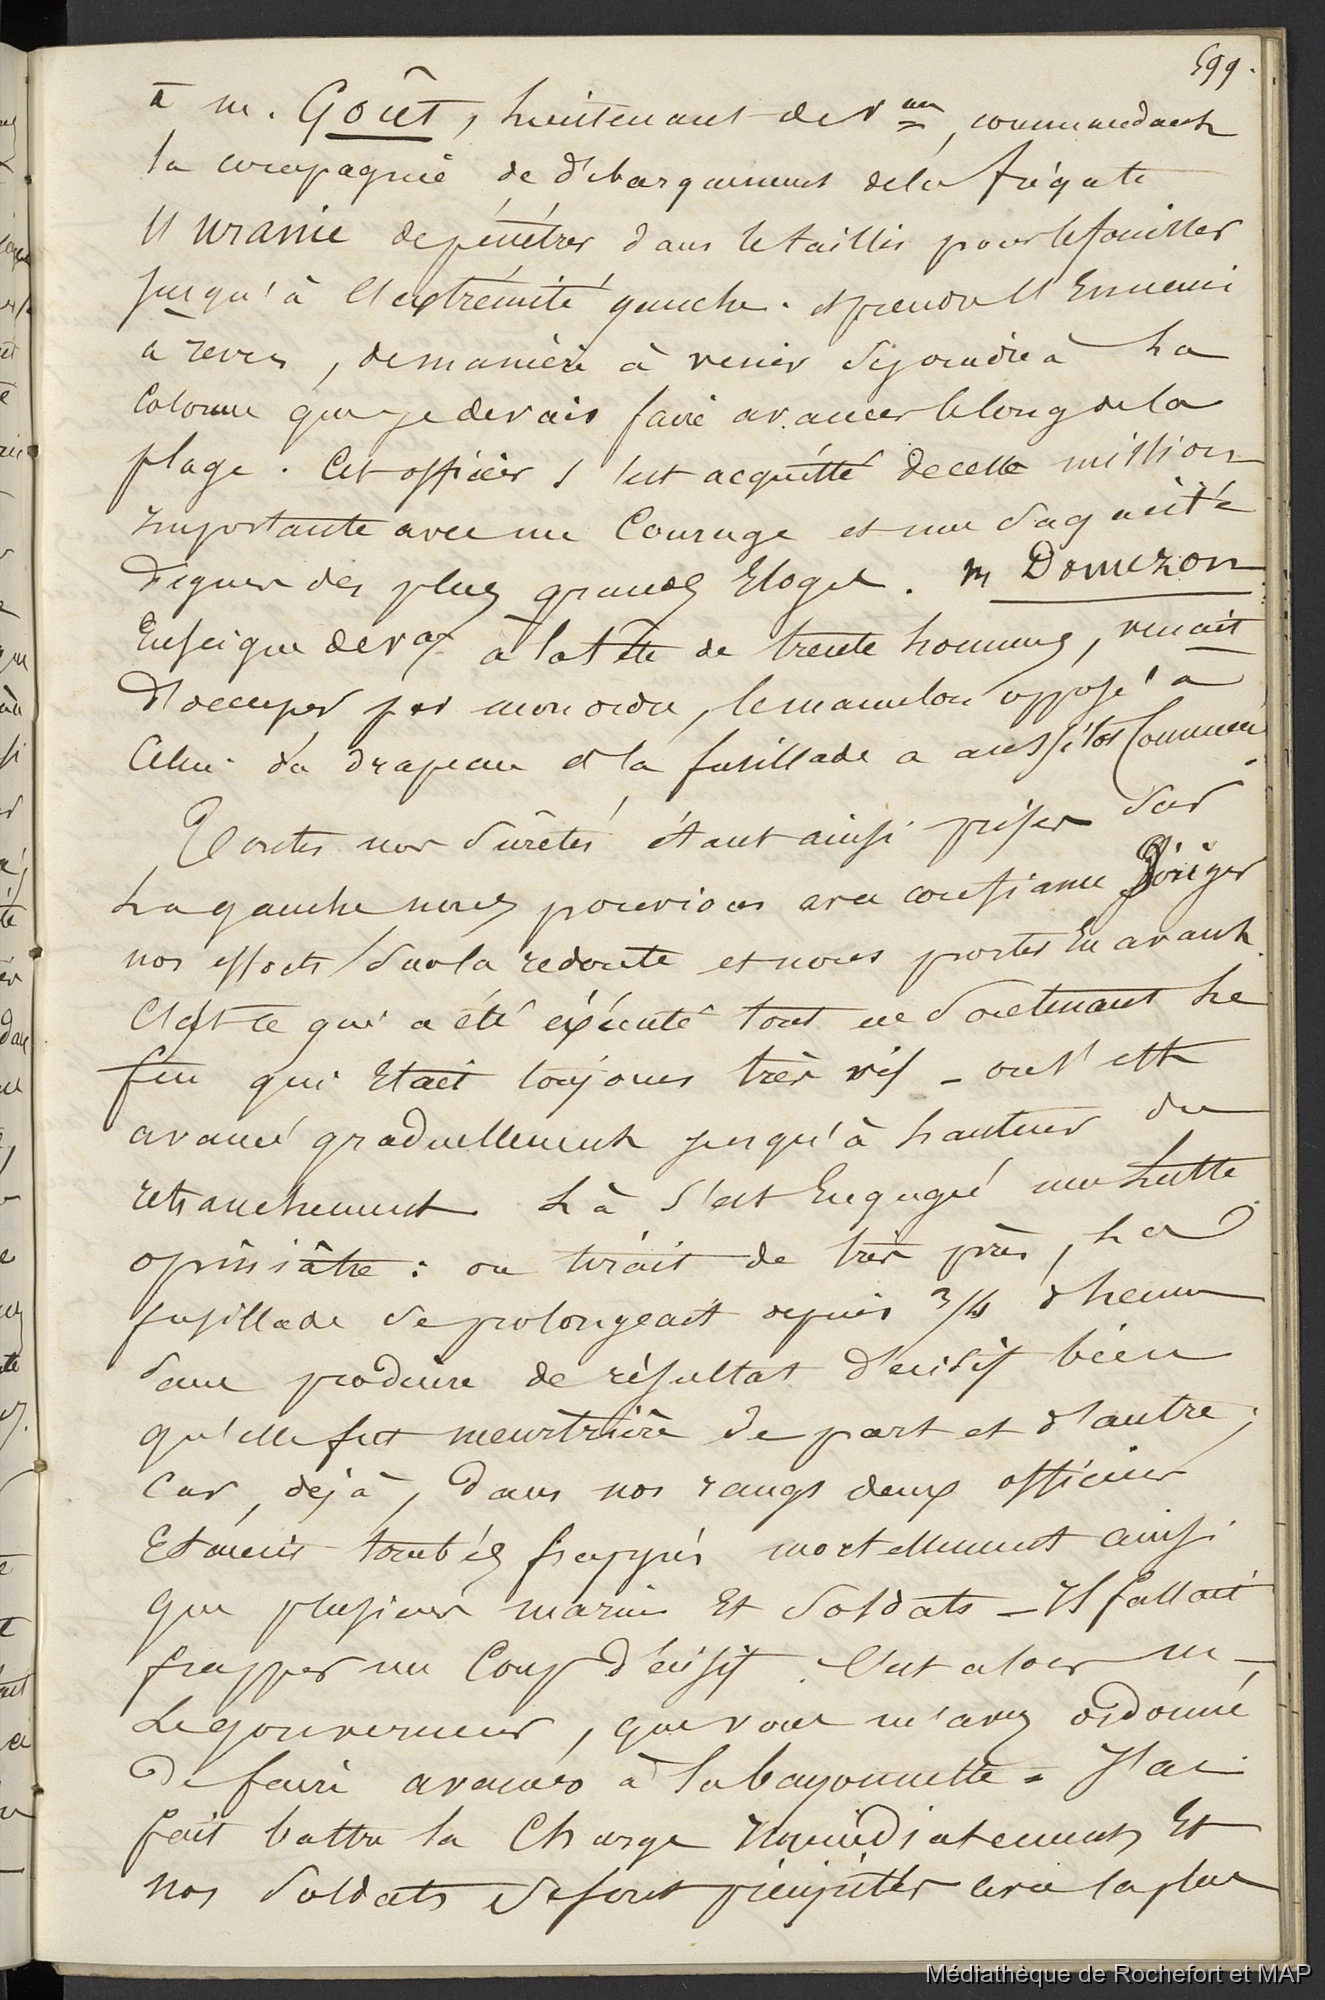 599.
à m. Goût, Lieutenant de Vau, commandant
la compagnie de d'ebarquement de la frégate
l'uranie de pénétrer dans le taillis pour le fouiller
jusqu'à l'extrémité gauche. et prendre l'Ennemi
a revers, de manière à venir se joindre à La
Colonne que je devais faire avancer le long de la
plage. Cet officier s'est acquitté de cette mission
importante avec un Courage et une Sagacité
dignes des plus grands Eloges. m Domezon
Enseigne de Vau à la tête de trente hommes, venait
d'occuper par mon ordre, le mamelon opposé à
Celui du drapeau et la fusillade a aussitôt Commencé.
Toutes nos Sûretés étant ainsi prises Sur
La gauche nous pouvions avec confiance Diriger
nos efforts Sur la redoute et nous porter En avant.
C'est ce qui a été exécuté tout en Soutenant Le
feu qui Etait toujours très vif - on s'est
avancé graduellement jusqu'à hauteur du
retranchement. Là s'est Engagé une Lutte
opiniâtre : on tirait de très près, La
fusillade Se prolongeait depuis 3/4 d'heure
Sans produire de résultat d'ecisif bien
qu'elle fut meurtrière de part et d'autre;
Car, déjà, dans nos rangs deux officiers
Etaient tombés frappés mortellement ainsi
que plusieurs marins Et Soldats - Il fallait
frapper un Coup d'ecisif. C'est alors m
Le gouverneur, que vous m'avez ordonné
De faire avancer à la bayonnette = J'ai
fait battre la Charge immédiatement Et
nos Soldats Se sont précipités avec la plus
Médiathèque de Rochefort et MAP